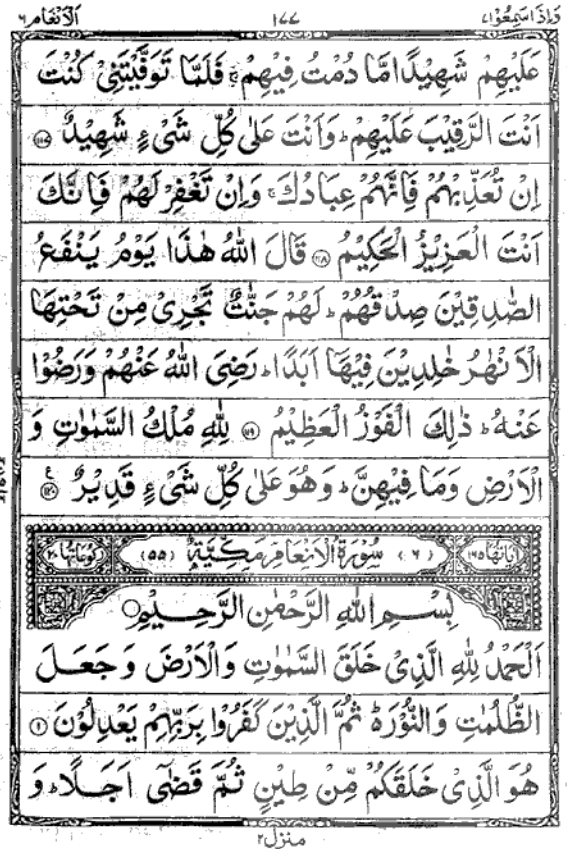 وَاِذَا سَمِعُوْا ٧ ١٧٧ اَلْاَنْعَام ٦
عَلَيْهِمْ شَهِيْدًا مَّا دُمْتُ فِيْهِمْ ۚ فَلَمَّا تَوَفَّيْتَنِيْ كُنْتَ
اَنْتَ الرَّقِيْبَ عَلَيْهِمْ ؕ وَاَنْتَ عَلٰى كُلِّ شَيْءٍ شَهِيْدٌ ﴿١١٧﴾
اِنْ تُعَذِّبْهُمْ فَاِنَّهُمْ عِبَادُكَ ۚ وَاِنْ تَغْفِرْ لَهُمْ فَاِنَّكَ
اَنْتَ الْعَزِيْزُ الْحَكِيْمُ ﴿١١٨﴾ قَالَ اللّٰهُ هٰذَا يَوْمُ يَنْفَعُ
الصّٰدِقِيْنَ صِدْقُهُمْ ؕ لَهُمْ جَنّٰتٌ تَجْرِيْ مِنْ تَحْتِهَا
الْاَنْهٰرُ خٰلِدِيْنَ فِيْهَاۤ اَبَدًا ؕ رَضِيَ اللّٰهُ عَنْهُمْ وَرَضُوْا
عَنْهُ ؕ ذٰلِكَ الْفَوْزُ الْعَظِيْمُ ﴿١١٩﴾ لِلّٰهِ مُلْكُ السَّمٰوٰتِ وَ
الْاَرْضِ وَمَا فِيْهِنَّ ؕ وَهُوَ عَلٰى كُلِّ شَيْءٍ قَدِيْرٌ ﴿١٢٠﴾ ع
اٰيَاتُهَا ١٦٥ (٦) سُوْرَةُ الْاَنْعَامِ مَكِّيَّةٌ (٥٥) رُكُوْعَاتُهَا ٢٠
بِسْمِ اللّٰهِ الرَّحْمٰنِ الرَّحِيْمِ
اَلْحَمْدُ لِلّٰهِ الَّذِيْ خَلَقَ السَّمٰوٰتِ وَالْاَرْضَ وَجَعَلَ
الظُّلُمٰتِ وَالنُّوْرَ ۬ؕ ثُمَّ الَّذِيْنَ كَفَرُوْا بِرَبِّهِمْ يَعْدِلُوْنَ ﴿١﴾
هُوَ الَّذِيْ خَلَقَكُمْ مِّنْ طِيْنٍ ثُمَّ قَضٰۤى اَجَلًا ؕ وَ
منزل ٢